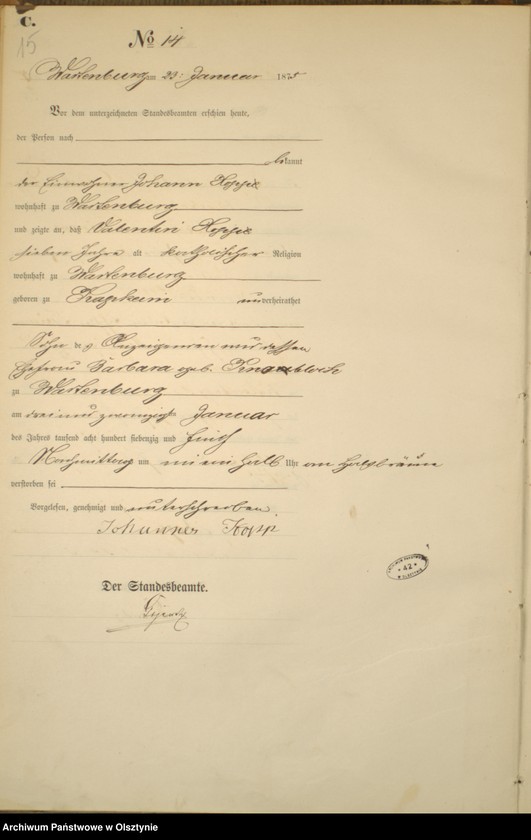 C.
15
No 14
Wartenburg am 23. Januar 1875
Vor dem unterzeichneten Standesbeamten erschien heute,
der Person nach
bekannt
der Einwohner Johann
wohnhaft zu Wartenburg
und zeigte an, daß Valentin
sieben Jahre alt katholischer Religion
wohnhaft zu Wartenburg
geboren zu unverheirathet
Sohn des Anzeigenden und dessen
Ehefrau Barbara geb.
zu Wartenburg
am drei und zwanzigsten Januar
des Jahres tausend acht hundert siebenzig und fünf
Nachmittag um ein halb Uhr an Halsbräune
verstorben sei
Vorgelesen, genehmigt und unterschrieben.
Johannes
Der Standesbeamte.
ARCHIWUM PAŃSTWOWE
* 42 *
W OLSZTYNIE
Archiwum Państwowe w Olsztynie